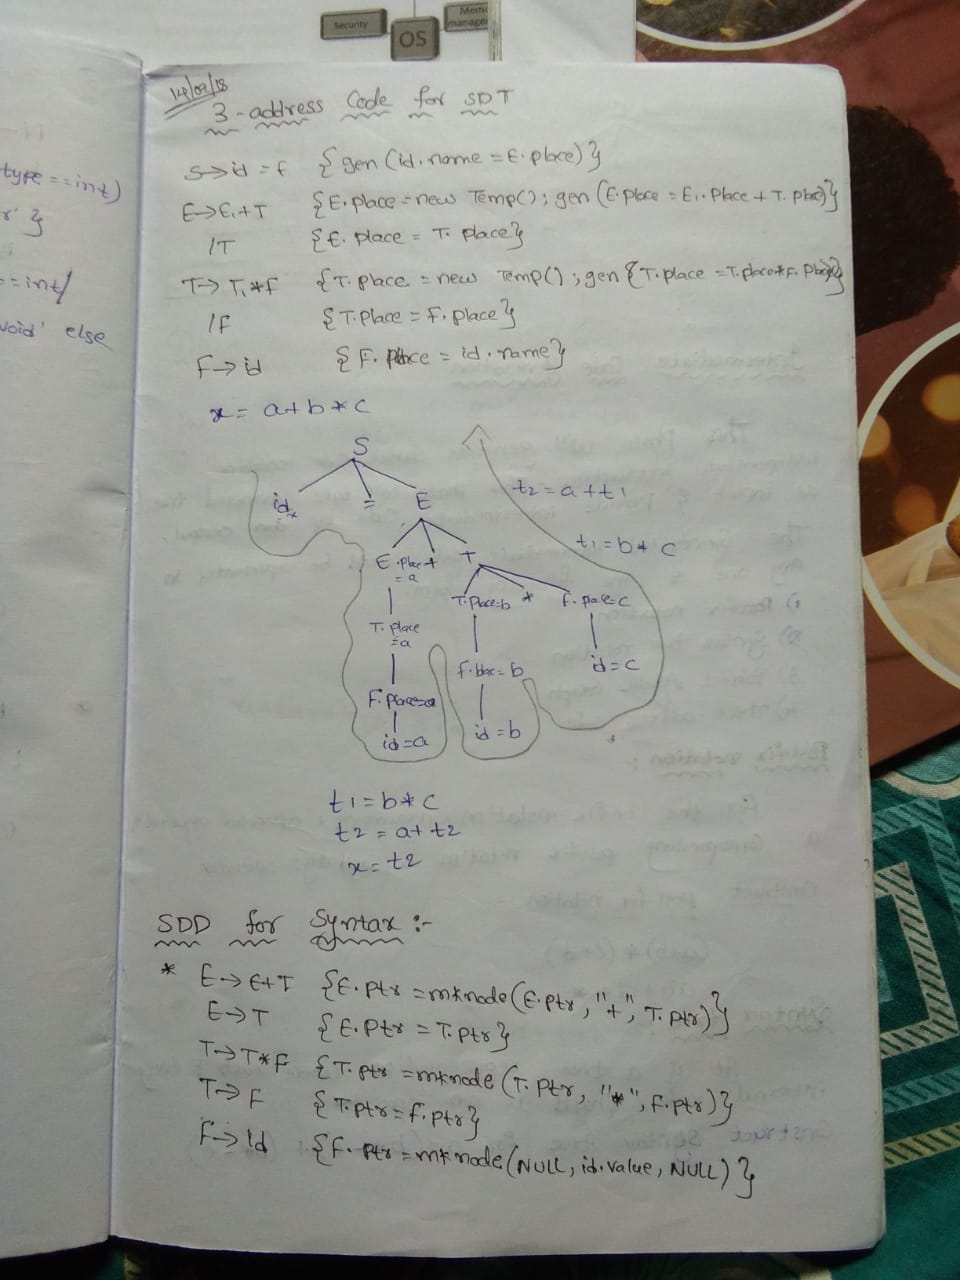 Security
OS
Mem
manage
type == int)
r' }
== int/
void' else
14/02/18
3-address Code for SDT
S→id = E {gen (id.name = E.place)}
E→E1+T {E.place = new Temp(); gen (E.Place = E1.Place + T.place)}
/T {E.place = T.place}
T→T1*F {T.place = new Temp(); gen {T.place = T.place*F.Place}}
/F {T.Place = F.place}
F→id {F.place = id.name}
x = a+b*c
S
id x = E
t2 = a+t1
t1 = b*c
E.place + T
= a
T.Place=b * F.place=c
T.place
=a
F.place=b id=c
F.place=a
id=a id=b
t1=b*c
t2 = a+t2
x = t2
SDD for Syntax :-
* E→E+T {E.ptr = mknode(E.ptr, "+", T.ptr)}
E→T {E.Ptr = T.ptr}
T→T*F {T.ptr = mknode (T.ptr, "*", F.ptr)}
T→F {T.ptr = F.ptr}
F→id {F.ptr = mknode(NULL, id.value, NULL)}